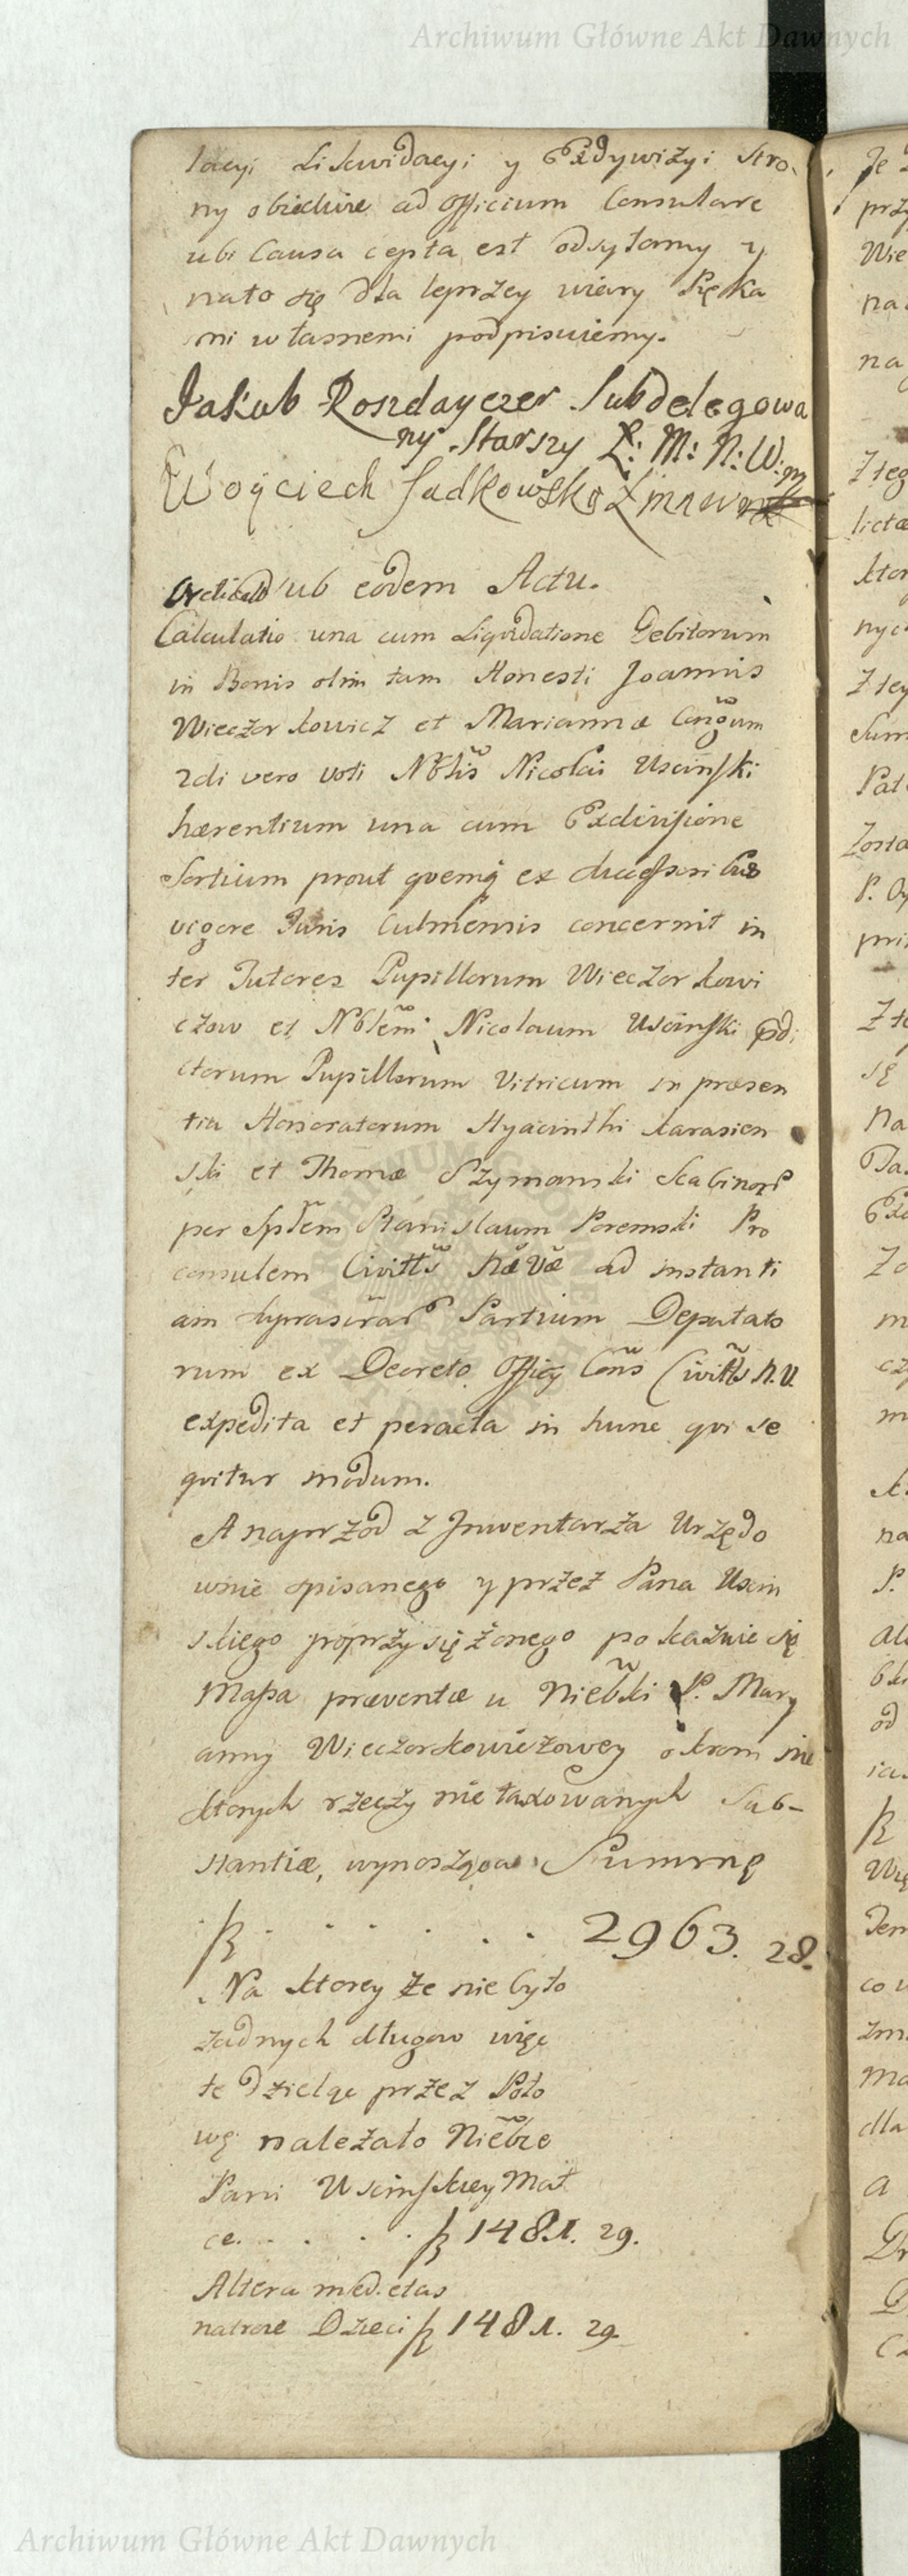 Archiwum Główne Akt Dawnych
lacyi Likwidacyi y Exdywizyi Stro
ny obiedwie ad Officium Consulare
ubi Causa cepta est odsyłamy y
na to się dla lepszey wiary Ręka
mi własnemi podpisuiemy.
Jakub Roszdayczer Subdelegowa
ny Starszy L: M: N: W:
Woyciech Sadkowski
sub eodem Actu.
Calculatio una cum Liqvidatione Debitorum
in Bonis olim tam Honesti Joannis
Wieczorkowicz et Mariannæ Congum
2di vero voti Nblis Nicolai Uscinski
hærentium una cum Exdivisione
Sortium prout qvemq ex Successoribus
vigore Juris Culmensis concernit in
ter Tutores Pupillorum Wieczorkowi
czow et Nblem Nicolaum Uscinski pdi
ctorum Pupillorum Vitricum in præsen
tia Honoratorum Hyacinthi Karasien
ski et Thomæ Szymanski Scabinor
per Spblem Stanislaum Poremski Pro
consulem Civittis ad instanti
am Partium Deputato
rum ex Decreto Officy Cons Civittis N.V.
expedita et peracta in hunc qvi se
qvitur modum.
A naprzod z Jnwentarza Urzędo
wnie spisanego y przez Pana Uscin
skiego poprzysiężonego pokazuie się
Massa præventæ u Niebki P. Mary
anny Wieczorkowiczowey okrom nie
ktorych rzeczy nie taxowanych Sub-
stantiæ, wynosząca Summę
. . . . . . 2963. 28.
Na ktorey że nie było
żadnych długow więc
te dzieląc przez Poło
wę należało Niebże
Pani Uscinskiey Mat
ce. . . . . 1481. 29.
Altera medietas
na troie Dzieci 1481. 29
Archiwum Główne Akt Dawnych